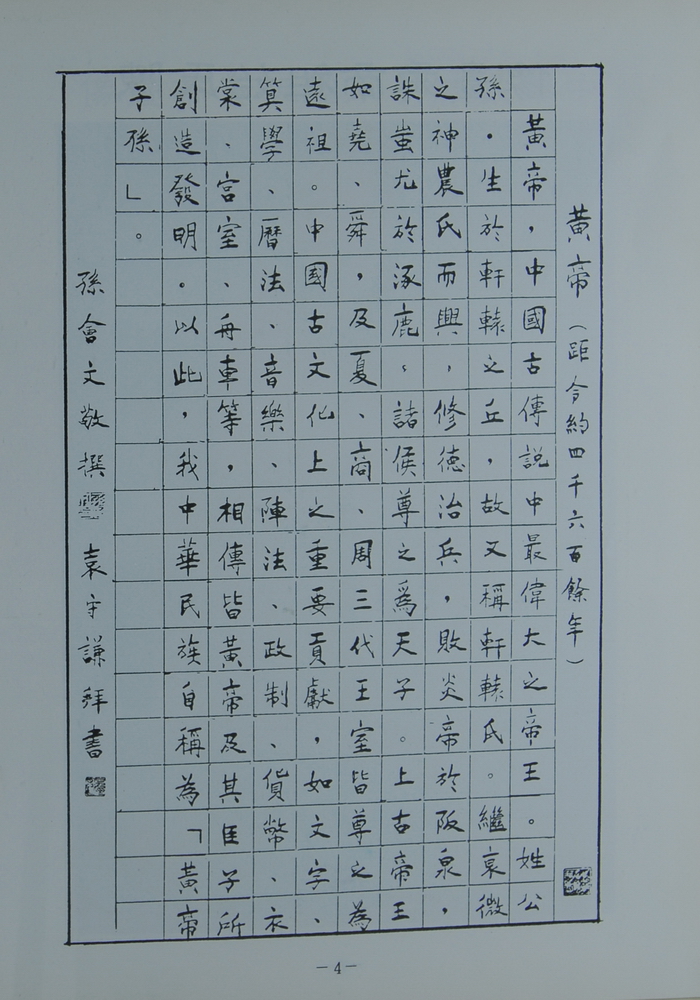 黃帝（距今約四千六百餘年）
黃帝，中國古傳說中最偉大之帝王。姓公
孫。生於軒轅之丘，故又稱軒轅氏。繼衰微
之神農氏而興，修德治兵，敗炎帝於阪泉，
誅蚩尤於涿鹿、諸侯尊之為天子。上古帝王
如堯、舜，及夏、商、周三代王室皆尊之為
遠祖。中國古文化上之重要貢獻，如文字、
算學、曆法、音樂、陣法、政制、貨幣、衣
棠、宮室、舟車等，相傳皆黃帝及其臣子所
創造發明。以此，我中華民族自稱為「黃帝
子孫」。
孫會文敬撰 袁守謙拜書
－4－